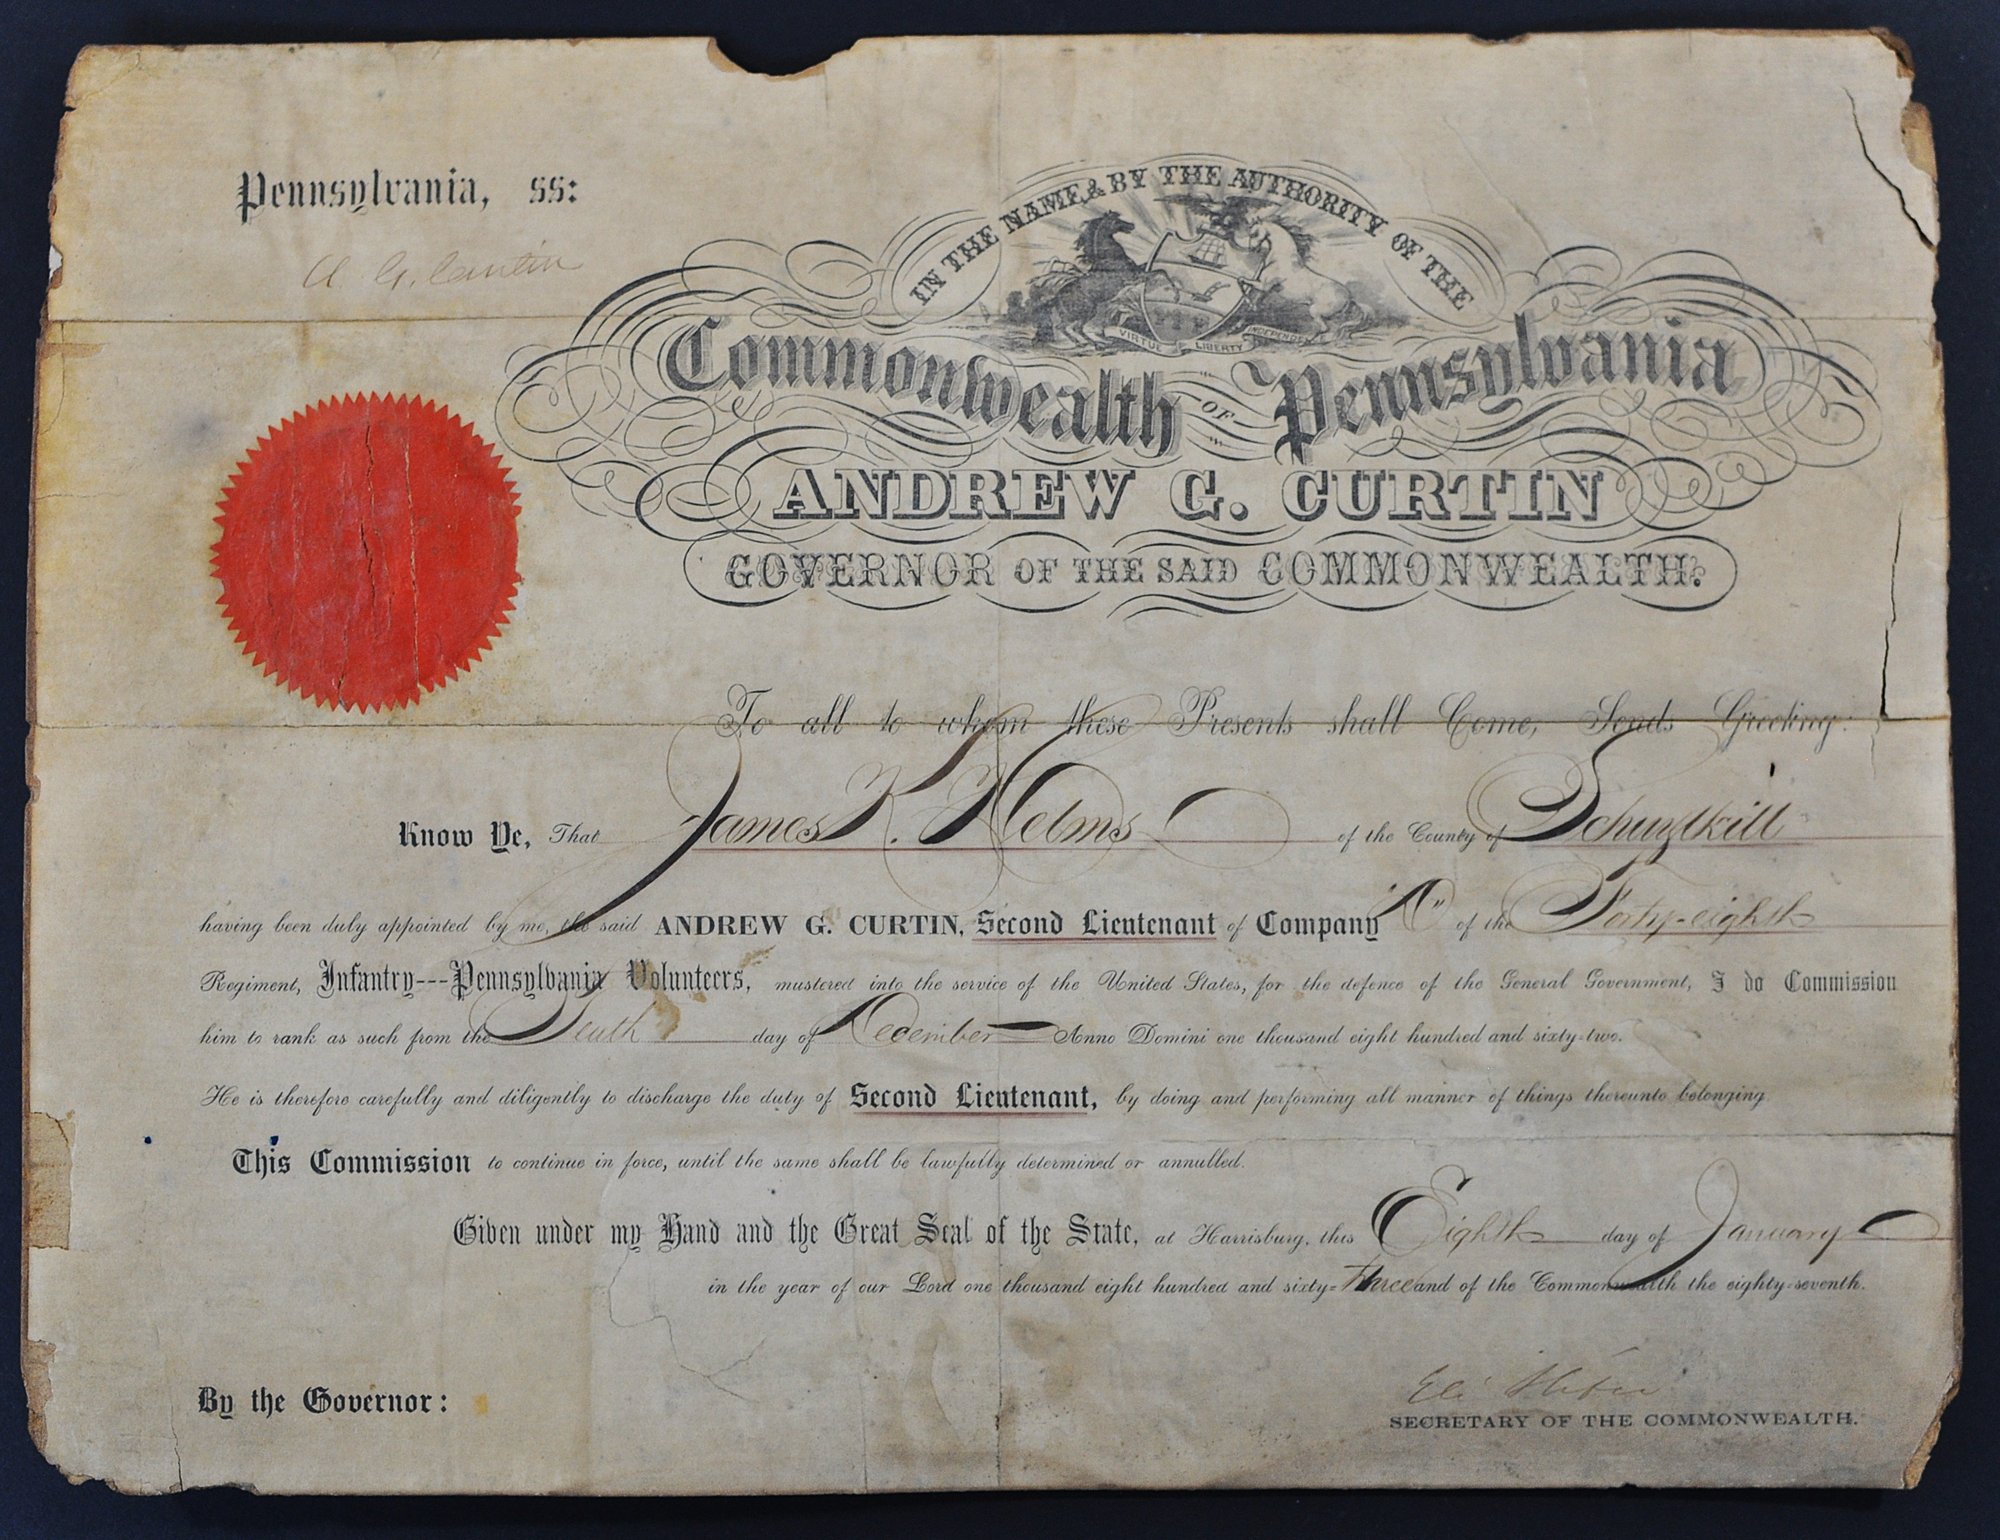 Pennsylvania, ss:
A. G. Curtin
IN THE NAME, & BY THE AUTHORITY OF THE
VIRTUE LIBERTY INDEPENDENCE
Commonwealth OF Pennsylvania
ANDREW G. CURTIN
GOVERNOR OF THE SAID COMMONWEALTH.
To all to whom these Presents shall Come, Sends Greeting:
Know Ye, That James K. Helms of the County of Schuylkill
having been duly appointed by me, the said ANDREW G. CURTIN, Second Lieutenant of Company of the Forty-eighth
Regiment, Infantry---Pennsylvania Volunteers, mustered into the service of the United States, for the defence of the General Government, I do Commission
him to rank as such from the Tenth day of December Anno Domini one thousand eight hundred and sixty-two.
He is therefore carefully and diligently to discharge the duty of Second Lieutenant, by doing and performing all manner of things thereunto belonging.
This Commission to continue in force, until the same shall be lawfully determined or annulled.
Given under my Hand and the Great Seal of the State, at Harrisburg, this Eighth day of January
in the year of our Lord one thousand eight hundred and sixty-Three and of the Commonwealth the eighty-seventh.
Eli Slifer
By the Governor:
SECRETARY OF THE COMMONWEALTH.